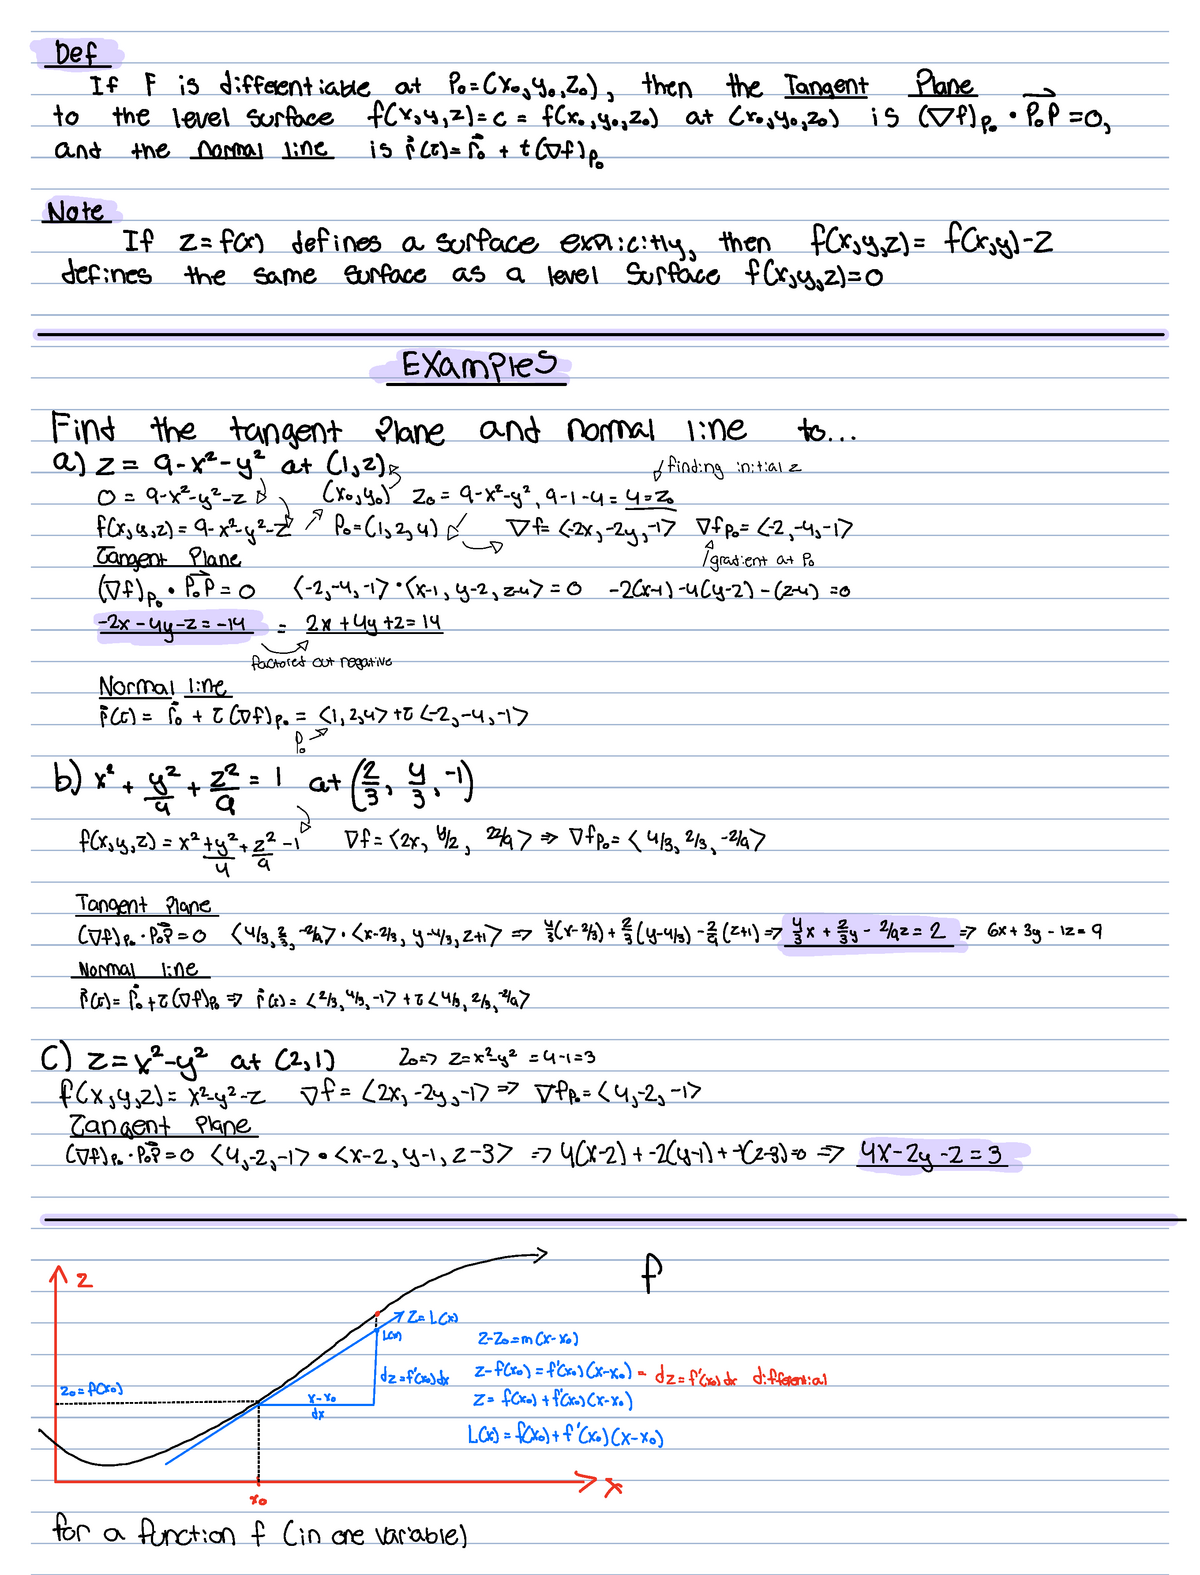 Def
If F is differentiable at P₀=(x₀,y₀,z₀), then the Tangent Plane
to the level surface f(x,y,z)=c = f(x₀,y₀,z₀) at (x₀,y₀,z₀) is (∇f)P₀ • P₀P⃗ =0,
and the normal line is r⃗(t)= r⃗₀ + t(∇f)P₀
Note
If z=f(x) defines a surface explicitly, then f(x,y,z)= f(x,y)-z
defines the same surface as a level surface f(x,y,z)=0
Examples
Find the tangent plane and normal line to...
a) z = 9-x²-y² at (1,2) finding initial z
0 = 9-x²-y²-z (x₀,y₀) z₀ = 9-x²-y², 9-1-4 = 4=z₀
f(x,y,z) = 9-x²-y²-z P₀=(1,2,4) ∇f= <-2x,-2y,-1> ∇fP₀= <-2,-4,-1>
Tangent Plane gradient at P₀
(∇f)P₀ • P₀P⃗ = 0 <-2,-4,-1>•<x-1, y-2, z-4> = 0 -2(x-1)-4(y-2)-(z-4) =0
-2x-4y-z=-14 = 2x+4y+z=14
factored out negative
Normal line
r⃗(t) = r⃗₀ + t(∇f)P₀ = <1,2,4> +t <-2,-4,-1>
P₀
b) x² + y²/4 + z²/9 = 1 at (2/3, 4/3, -1)
f(x,y,z) = x²+y²/4+z²/9 -1 ∇f= <2x, y/2, 2z/9> ⇒ ∇fP₀= <4/3, 2/3, -2/9>
Tangent Plane
(∇f)P₀•P₀P⃗=0 <4/3, 2/3, -2/9>•<x-2/3, y-4/3, z+1> ⇒ 4/3(x-2/3)+2/3(y-4/3)-2/9(z+1) ⇒ 4/3x + 2/3y - 2/9z = 2 ⇒ 6x+3y-1z=9
Normal line
r⃗(t)= r⃗₀+t(∇f)P₀ ⇒ r⃗(t) = <2/3, 4/3, -1> +t <4/3, 2/3, -2/9>
C) z=x²-y² at (2,1) z₀=> z=x²-y² =4-1=3
f(x,y,z)= x²-y²-z ∇f= <2x,-2y,-1> ⇒ ∇fP₀=<4,-2,-1>
Tangent Plane
(∇f)P₀•P₀P⃗=0 <4,-2,-1> • <x-2, y-1, z-3> ⇒ 4(x-2)+-2(y-1)+-1(z-3)=0 ⇒ 4x-2y-z=3
f
z
z=L(x)
L(x)
z-z₀=m(x-x₀)
dz=f'(x₀)dx
z-f(x₀)=f'(x₀)(x-x₀) = dz=f'(x₀)dx differential
z₀=f(x₀)
x-x₀
z= f(x₀)+f'(x₀)(x-x₀)
dx
L(x)=f(x₀)+f'(x₀)(x-x₀)
x
x₀
for a function f (in one variable)